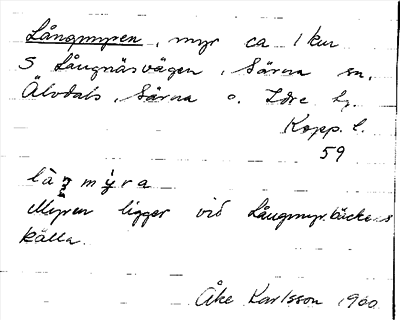 Långmyren, myr ca 1 km
S Långnäsvägen, Särna sn,
Älvdals, Särna o. Idre hg.
Kopp. l.
59
Myren ligger vid Långmyrbäckens
källa.
Åke Karlsson 1960